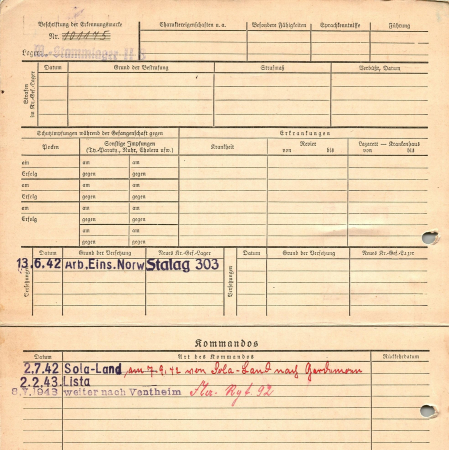 Beschriftung der Erkennungsmarke
Nr. 101175
Lager: M.-Stammlager II B
Charaktereigenschaften u.a.
Besondere Fähigkeiten
Sprachkenntnisse
Führung
Strafen
in Kr.-Gef.-Lager
Datum
Grund der Bestrafung
Strafmaß
Verbüßt, Datum
Schutzimpfungen während der Gefangenschaft gegen
Erkrankungen
Pocken
Sonstige Impfungen
(Ty.-Paraty., Ruhr, Cholera usw.)
Krankheit
Revier
von bis
Lazarett — Krankenhaus
von bis
am
am
am
Erfolg
gegen
gegen
am
am
am
Erfolg
gegen
gegen
am
am
am
Erfolg
gegen
gegen
am
am
am
Erfolg
gegen
gegen
am
am
gegen
gegen
Versetzungen
Datum
Grund der Versetzung
Neues Kr.-Gef.-Lager
Versetzungen
Datum
Grund der Versetzung
Neues Kr.-Gef.-Lager
13.6.42 Arb.Eins.Norw Stalag 303
Kommandos
Datum
Art des Kommandos
Rückkehrdatum
2.7.42 Sola-Land am 7.9.42 von Sola-Land nach
2.2.43. Lista
8.7.1943 weiter nach Ventheim 92